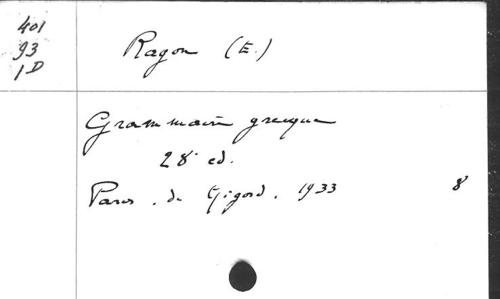 401
93
1D
Ragon (E.)
Grammaire grecque
28e ed.
Paris. de Gigord. 1933 8